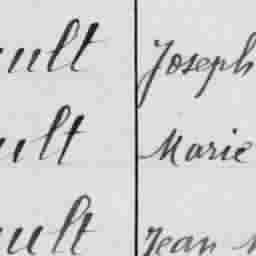 ult Joseph
ult Marie
ult Jean